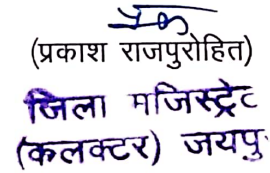 (प्रकाश राजपुरोहित)
जिला मजिस्ट्रेट
(कलक्टर) जयपु